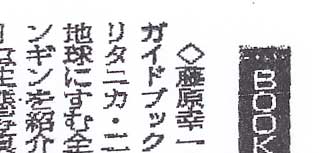 BOOK
◇藤原幸一
ガイドブック
リタニカ・ニ
地球にすむ全
ンギンを紹介